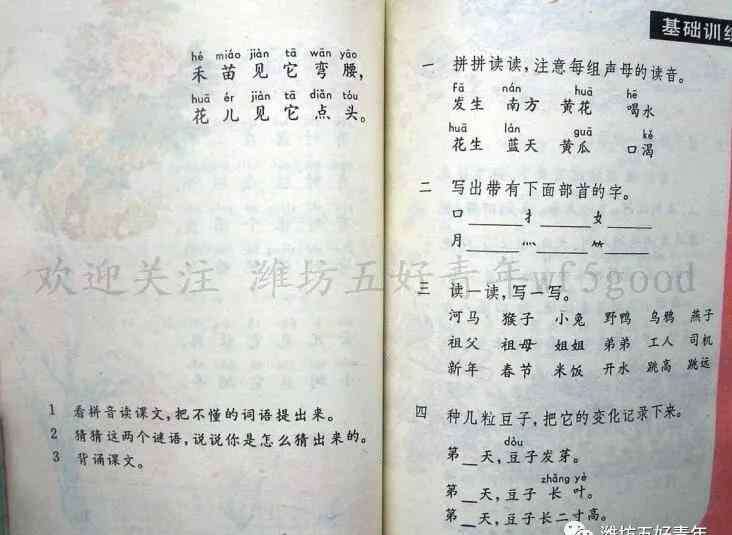 hé miáo jiàn tā wān yāo
禾苗见它弯腰,
huā ér jiàn tā diǎn tóu
花儿见它点头。
1 看拼音读课文,把不懂的词语提出来。
2 猜猜这两个谜语,说说你是怎么猜出来的。
3 背诵课文。
基础训练
一 拼拼读读,注意每组声母的读音。
fā nán huā hē
发生 南方 黄花 喝水
huā lán guā kě
花生 蓝天 黄瓜 口渴
二 写出带有下面部首的字。
口______扌______女______
月______灬______⺮______
三 读一读,写一写。
河马 猴子 小兔 野鸭 乌鸦 燕子
祖父 祖母 姐姐 弟弟 工人 司机
新年 春节 米饭 开水 跳高 跳远
四 种几粒豆子,把它的变化记录下来。
dòu
第__天,豆子发芽。
zhǎng yè
第__天,豆子长叶。
第__天,豆子长二寸高。
欢迎关注 潍坊五好青年wf5good
潍坊五好青年